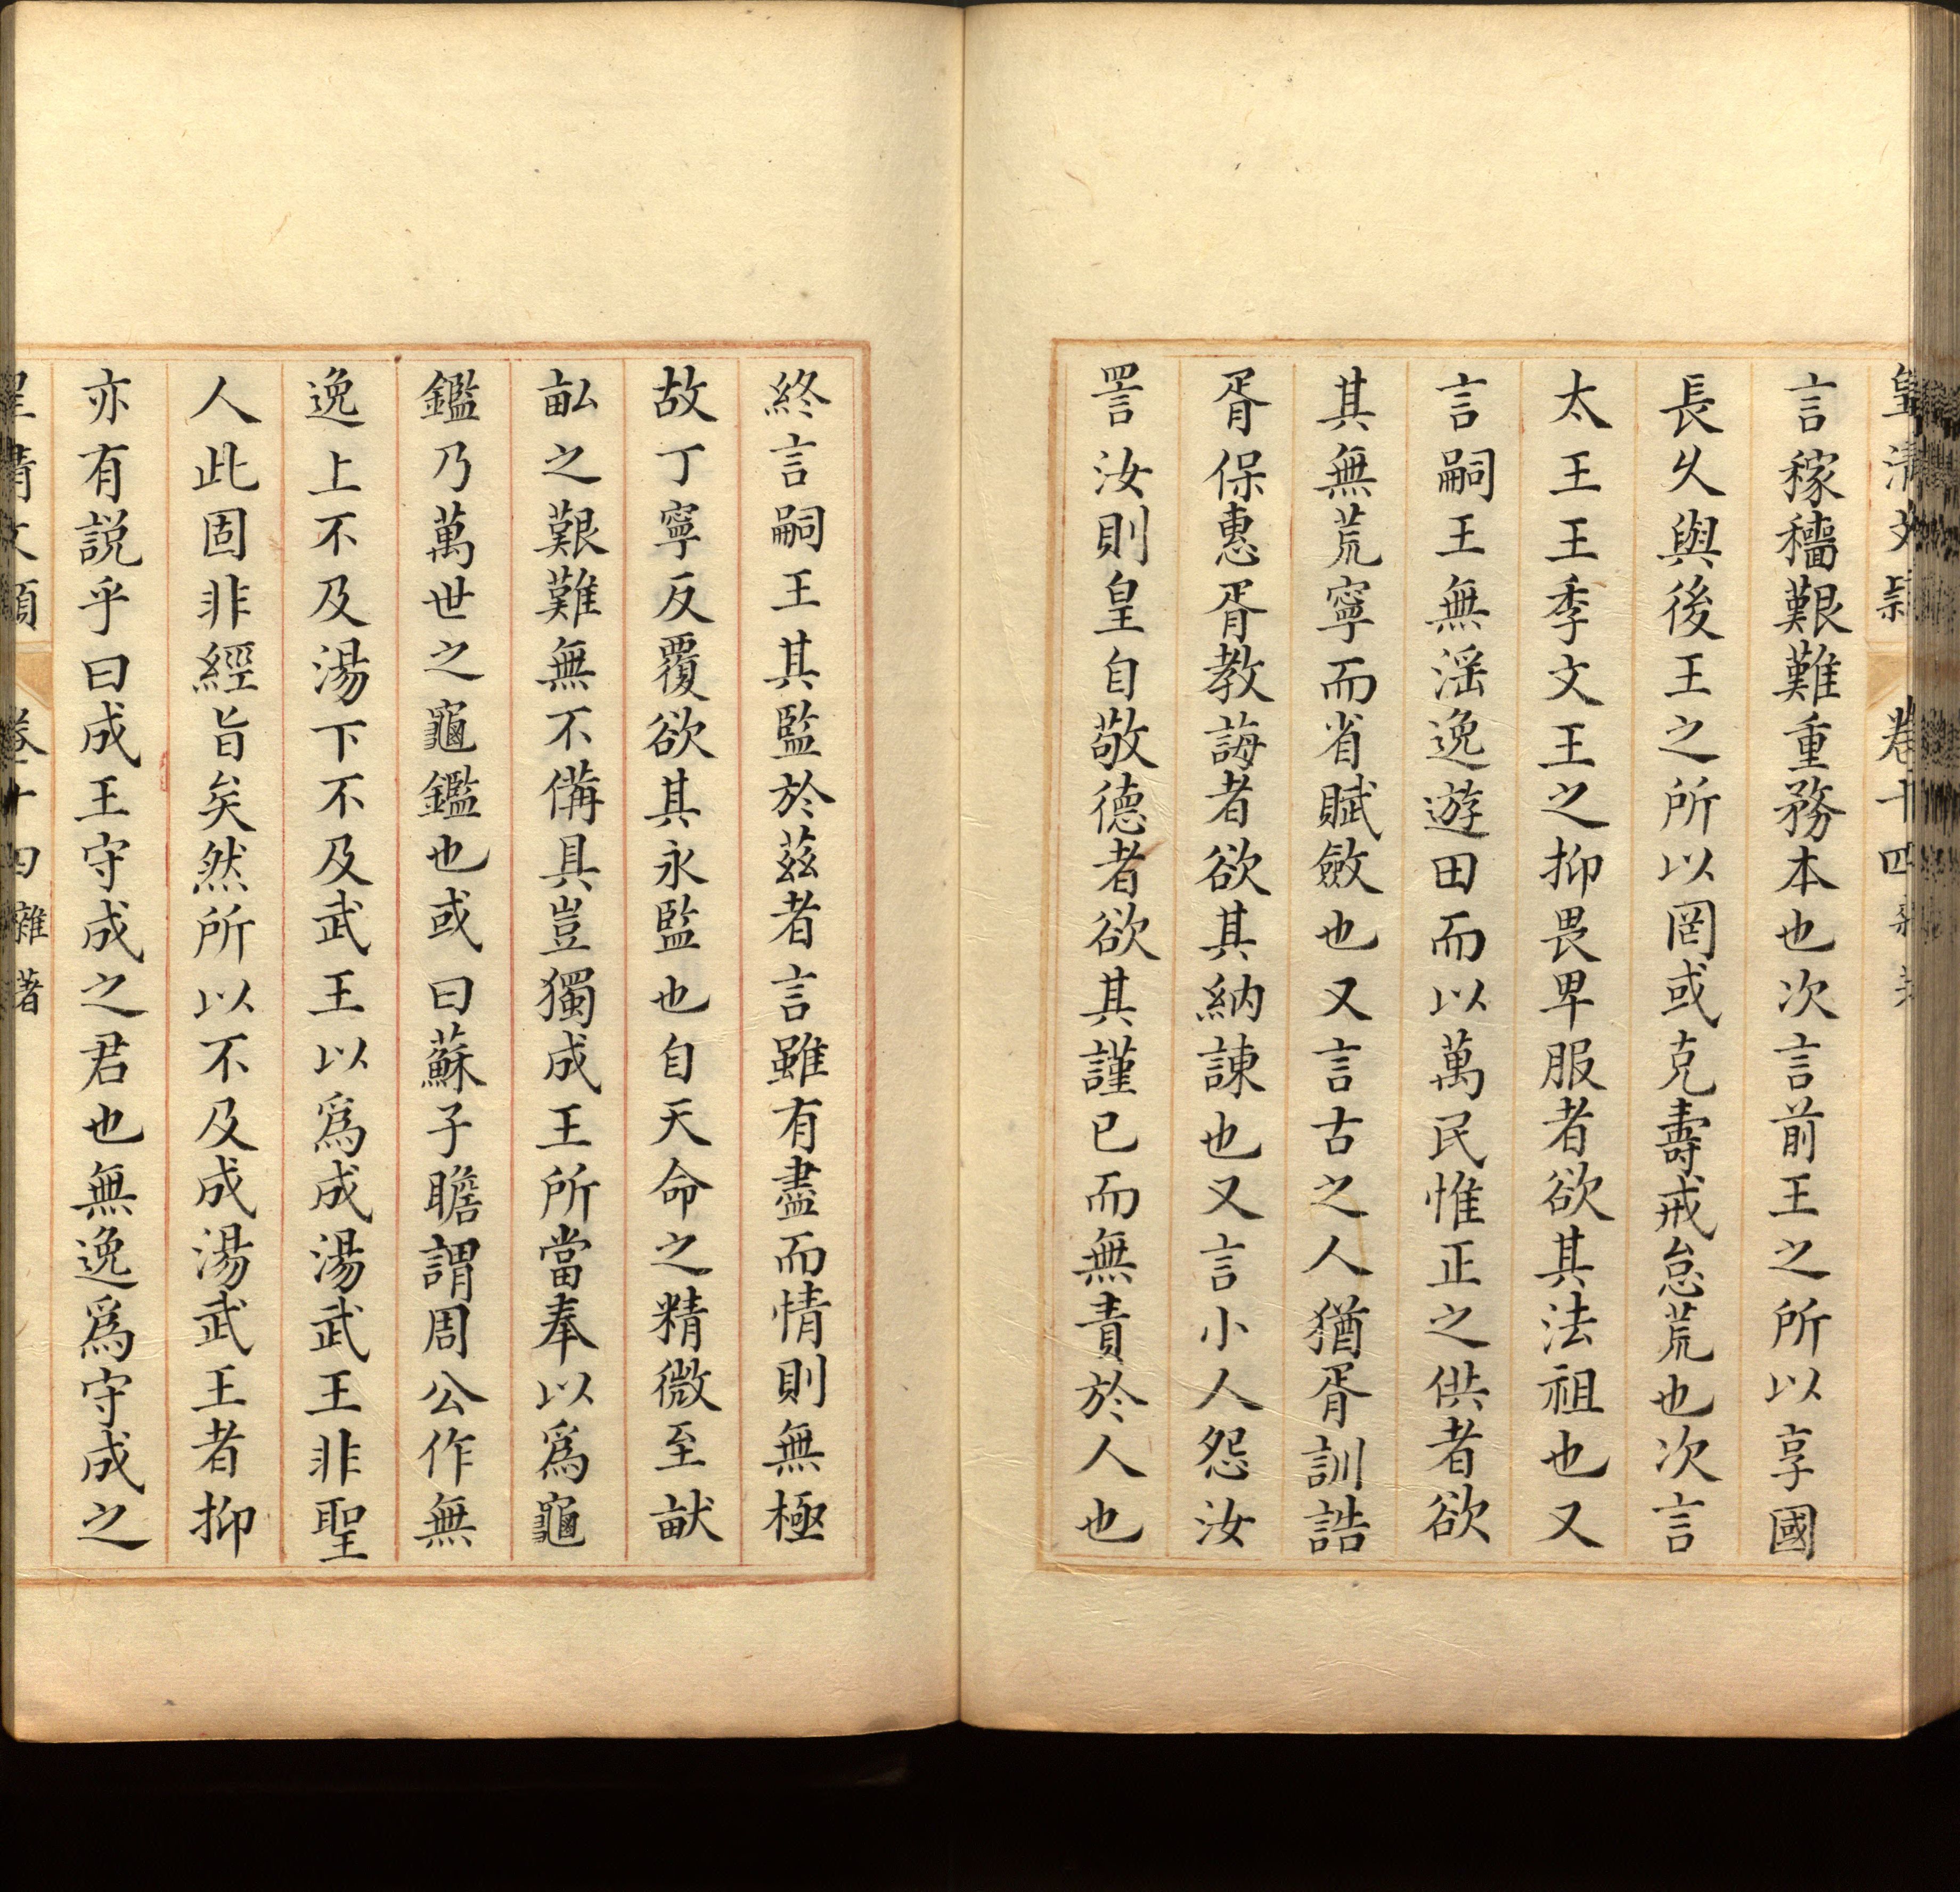 皇清文穎 卷十四 雜著
言稼穡艱難重務本也次言前王之所以享國
長乆與後王之所以罔或克壽戒怠荒也次言
太王王季文王之抑畏卑服者欲其法祖也又
言嗣王無淫逸遊田而以萬民惟正之供者欲
其無荒寧而省賦斂也又言古之人猶胥訓誥
胥保惠胥教誨者欲其納諫也又言小人怨汝
詈汝則皇自敬德者欲其謹已而無責於人也
終言嗣王其監於茲者言雖有盡而情則無極
故丁寧反覆欲其永監也自天命之精微至畎
畝之艱難無不備具豈獨成王所當奉以爲龜
鑑乃萬世之龜鑑也或曰蘇子瞻謂周公作無
逸上不及湯下不及武王以爲成湯武王非聖
人此固非經旨矣然所以不及成湯武王者抑
亦有説乎曰成王守成之君也無逸爲守成之
皇清文穎 卷十四 雜著